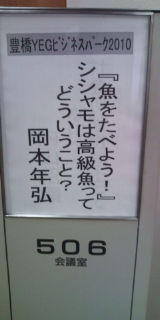 豊橋YEGビジネスパーク2010
『魚をたべよう！』
シシャモは高級魚って
どういうこと？
岡本年弘
506
会議室